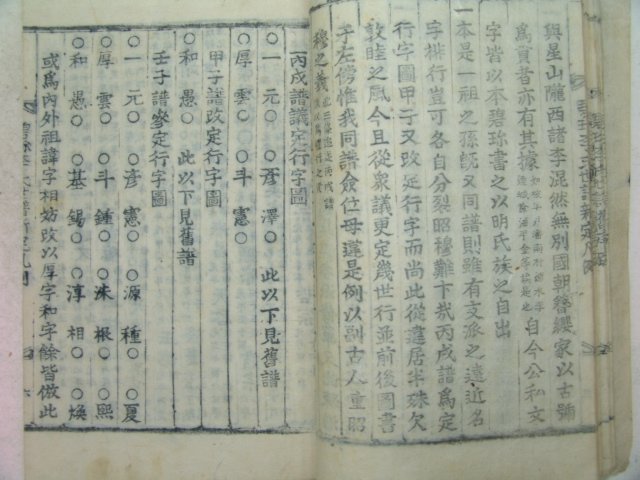 與星山隴西諸李混然無別國朝簪纓家以古號
爲貫者亦有其據 自今公私文
字皆以本碧珍書之以明氏族之自出
一本是一祖之孫旣又同譜則雖有支派之遠近名
字排行豈可各自分裂昭穆難下哉丙戌譜爲定
行字圖甲子又改定行字而尚此從違居半殊欠
敦睦之風今且從衆議更定幾世行並前後圖書
于左傍惟我同譜僉位毋違是例以副古人重昭
穆之義
丙戌譜議定行字圖
○一元○彦澤○ 此以下見舊譜
○厚雲○斗憲○
甲子譜改定行字圖
○和愚○ 此以下見舊譜
壬子譜參定行字圖
○一元○彦憲○源種○夏
○厚雲○斗鍾○洙根○熙
○和愚○基錫○淳相○煥
或爲內外祖諱字相妨改以厚字和字餘皆倣此